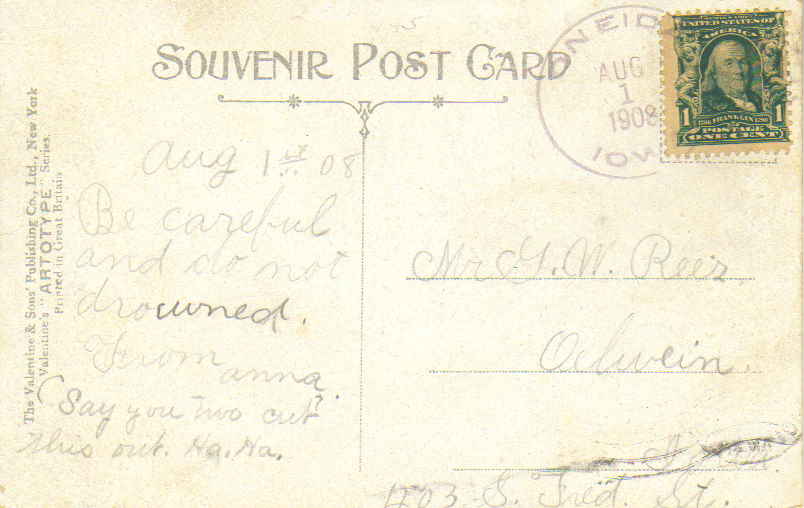 SOUVENIR POST CARD
ONEIDA
AUG
1
1908
IOWA
UNITED STATES OF
AMERICA
1 FRANKLIN 1
POSTAGE
ONE CENT
The Valentine & Sons' Publishing Co., Ltd., New York
Valentine's "ARTOTYPE" Series.
Printed in Great Britain
Aug 1st 08
Be careful
and do not
drowned.
From
anna.
(Say you two cut?
this out. Ha. Ha.
Mr G. W. Reer
Oelwein.
403 S. Fred. St.